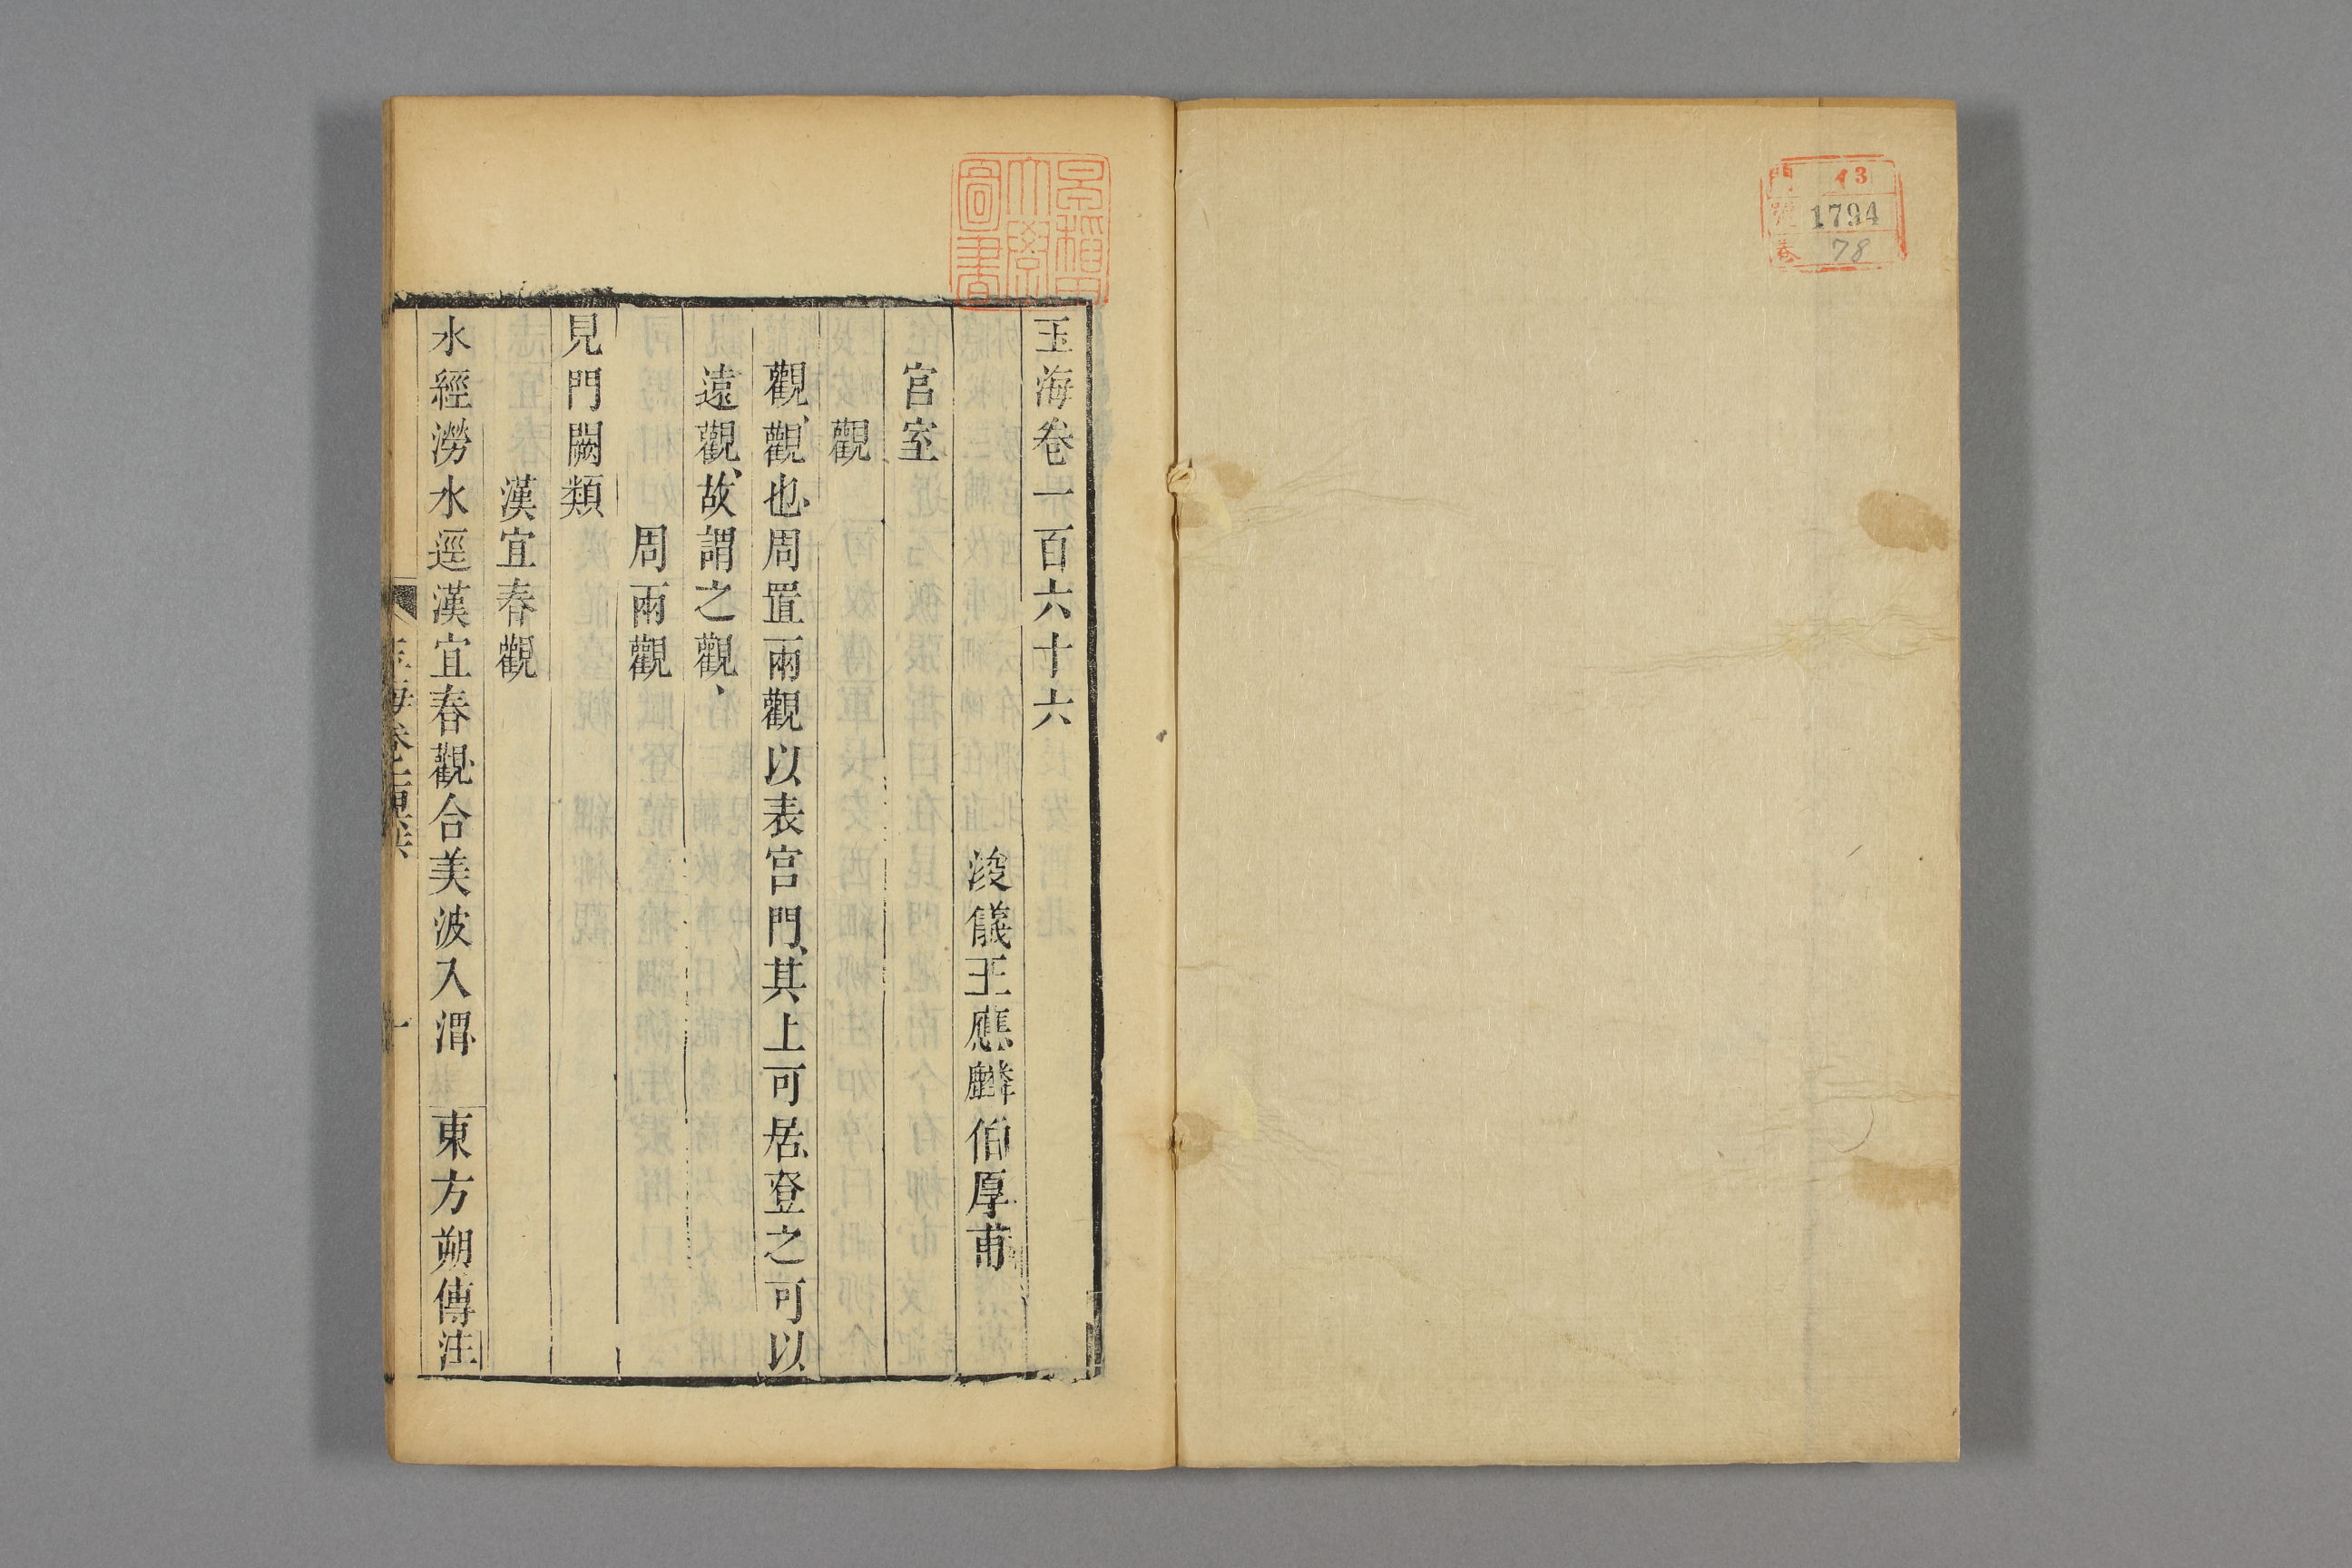 門 13
號 1794
卷 78
早稲田大學圖書
玉海卷一百六十六
浚儀王應麟伯厚甫
宮室
觀
觀、觀也、周置兩觀以表宮門、其上可居、登之可以
遠觀、故謂之觀、
周兩觀
見門闕類
漢宜春觀
水經澇水逕漢宜春觀、合美波入渭、 東方朔傳注
玉海卷一百六十六
一